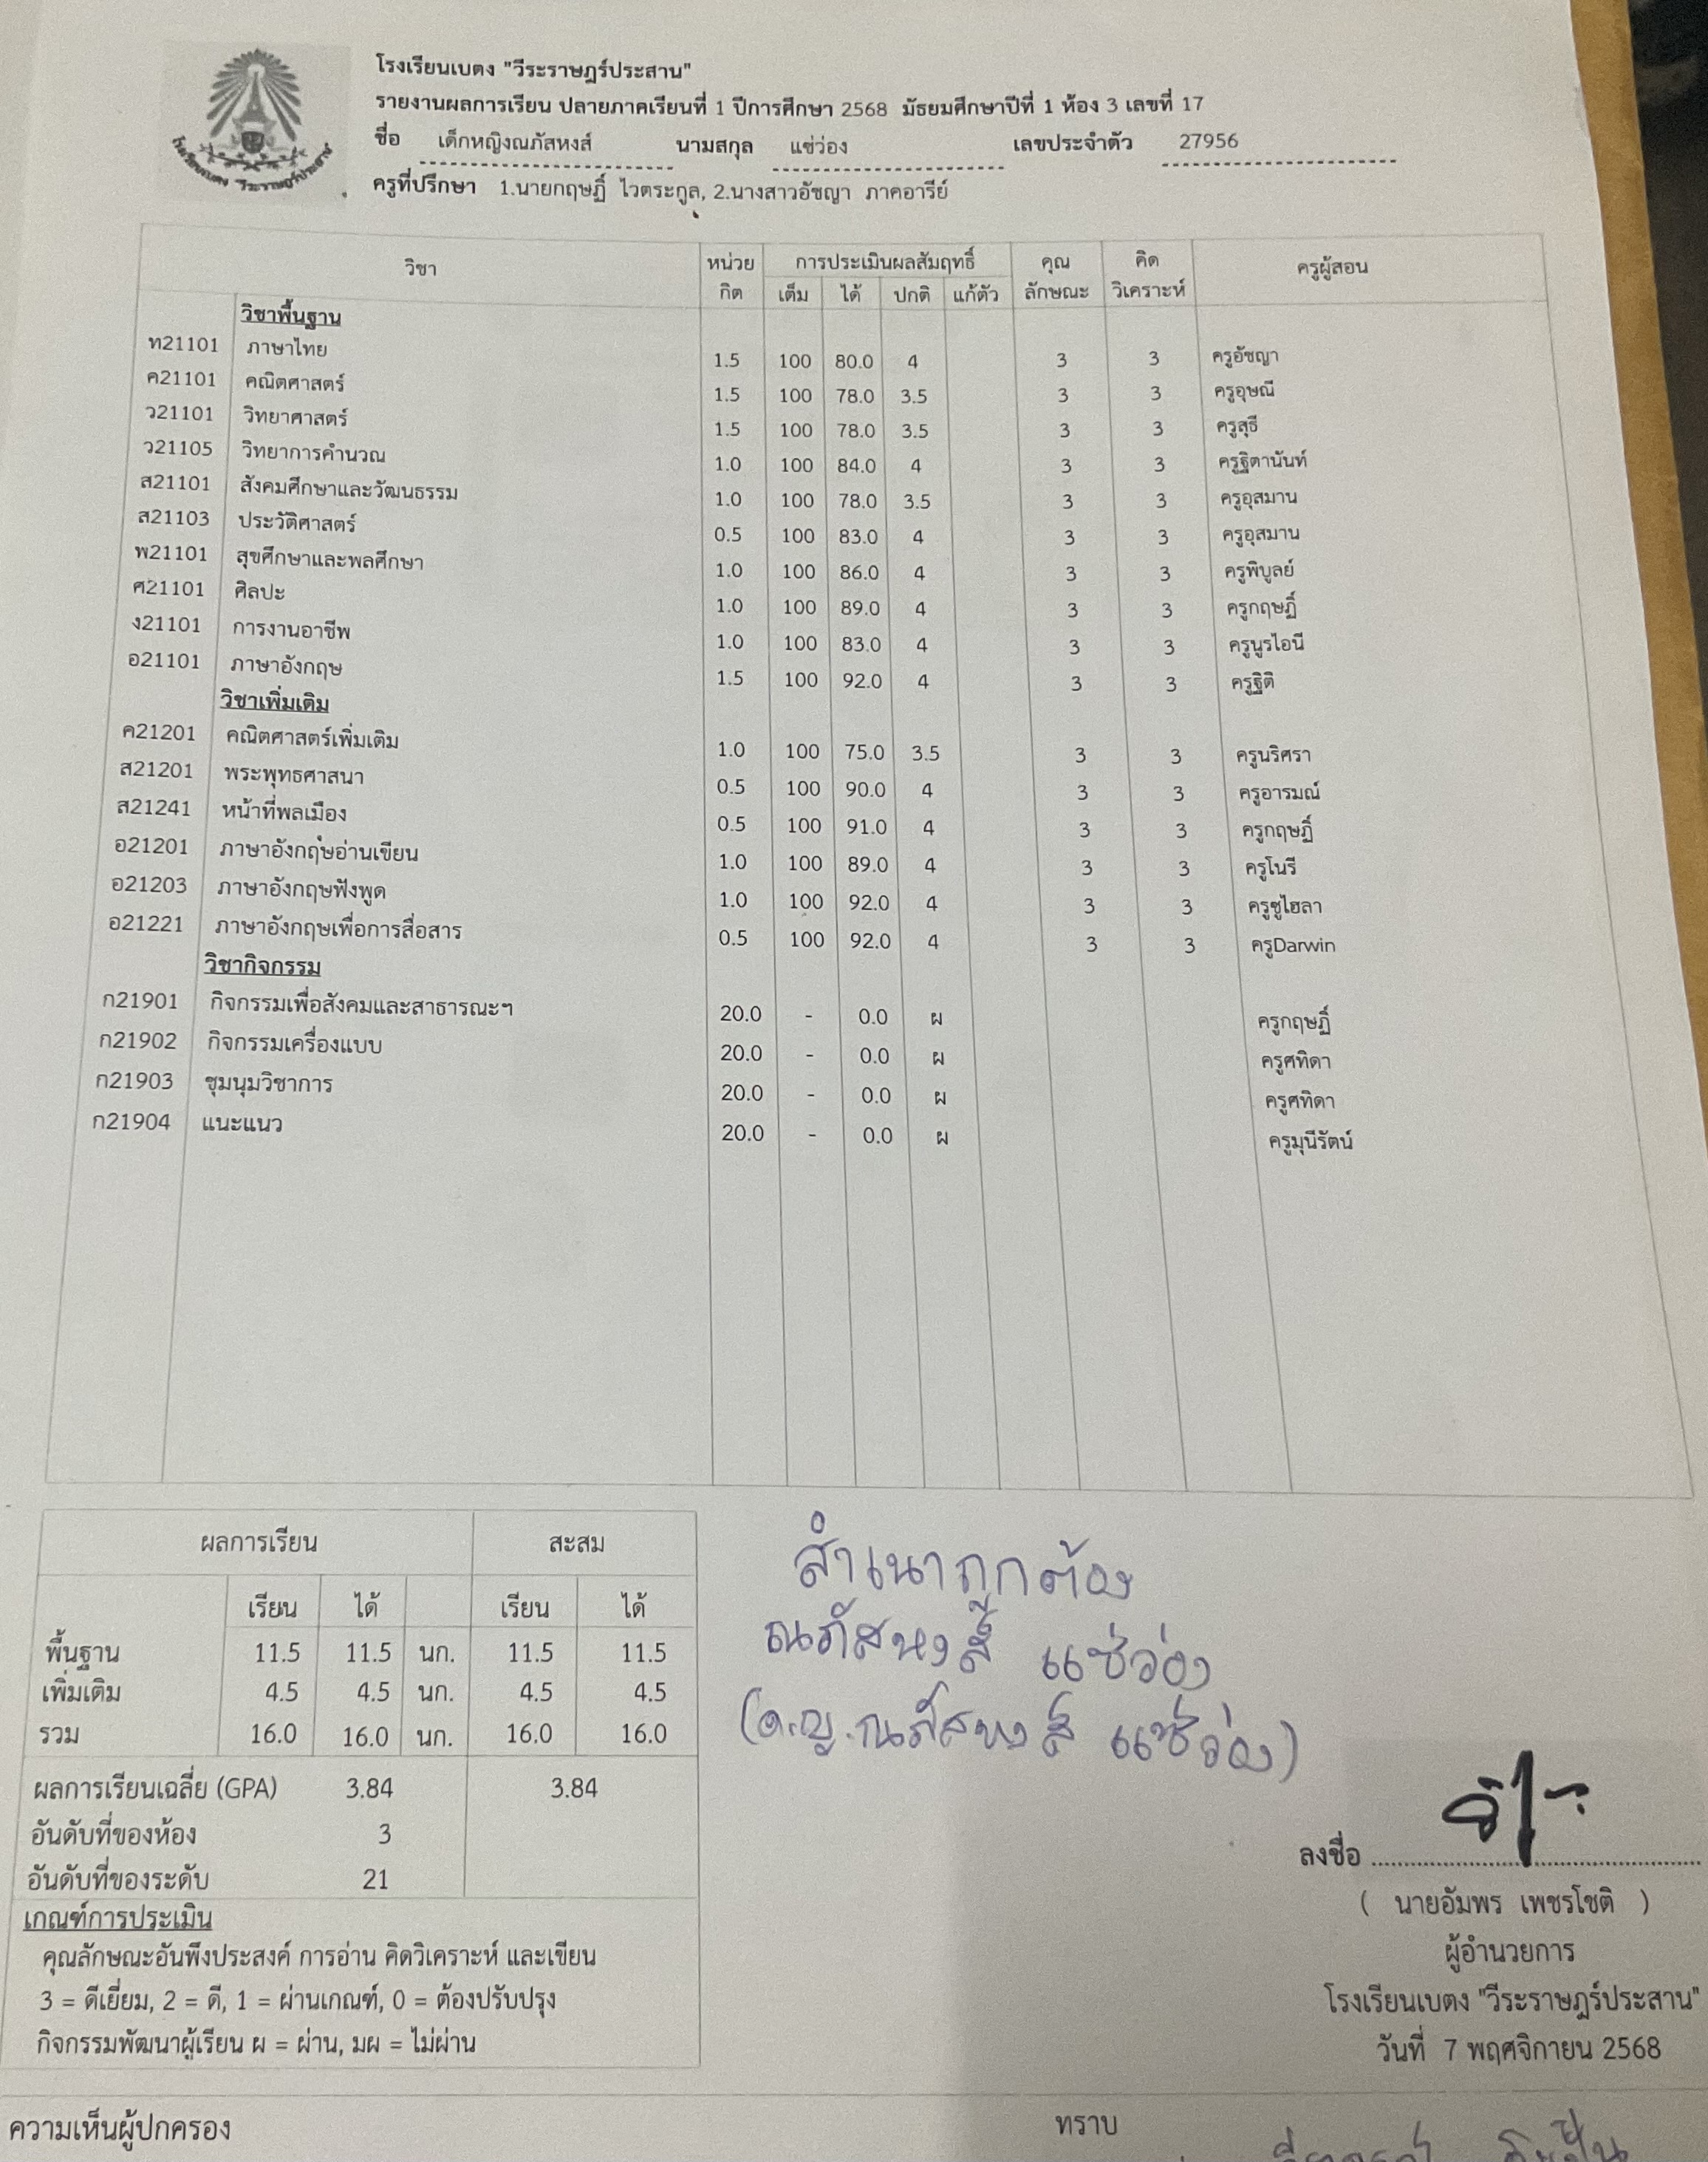 โรงเรียนเบตง "วีระราษฎร์ประสาน"
รายงานผลการเรียน ปลายภาคเรียนที่ 1 ปีการศึกษา 2568 มัธยมศึกษาปีที่ 1 ห้อง 3 เลขที่ 17
ชื่อ เด็กหญิงณภัสหงส์ นามสกุล แซ่ว่อง เลขประจำตัว 27956
ครูที่ปรึกษา 1.นายกฤษฏิ์ ไวตระกูล, 2.นางสาวอัชญา ภาคอารีย์
โรงเรียนเบตง "วีระราษฎร์ประสาน"
วิชา หน่วยกิต การประเมินผลสัมฤทธิ์ คุณลักษณะ คิดวิเคราะห์ ครูผู้สอน
เต็ม ได้ ปกติ แก้ตัว
วิชาพื้นฐาน
ท21101 ภาษาไทย 1.5 100 80.0 4 3 3 ครูอัชญา
ค21101 คณิตศาสตร์ 1.5 100 78.0 3.5 3 3 ครูอุษณี
ว21101 วิทยาศาสตร์ 1.5 100 78.0 3.5 3 3 ครูสุธี
ว21105 วิทยาการคำนวณ 1.0 100 84.0 4 3 3 ครูฐิตานันท์
ส21101 สังคมศึกษาและวัฒนธรรม 1.0 100 78.0 3.5 3 3 ครูอุสมาน
ส21103 ประวัติศาสตร์ 0.5 100 83.0 4 3 3 ครูอุสมาน
พ21101 สุขศึกษาและพลศึกษา 1.0 100 86.0 4 3 3 ครูพิบูลย์
ศ21101 ศิลปะ 1.0 100 89.0 4 3 3 ครูกฤษฏิ์
ง21101 การงานอาชีพ 1.0 100 83.0 4 3 3 ครูนูรไอนี
อ21101 ภาษาอังกฤษ 1.5 100 92.0 4 3 3 ครูฐิติ
วิชาเพิ่มเติม
ค21201 คณิตศาสตร์เพิ่มเติม 1.0 100 75.0 3.5 3 3 ครูนริศรา
ส21201 พระพุทธศาสนา 0.5 100 90.0 4 3 3 ครูอารมณ์
ส21241 หน้าที่พลเมือง 0.5 100 91.0 4 3 3 ครูกฤษฏิ์
อ21201 ภาษาอังกฤษอ่านเขียน 1.0 100 89.0 4 3 3 ครูโนรี
อ21203 ภาษาอังกฤษฟังพูด 1.0 100 92.0 4 3 3 ครูซูไฮลา
อ21221 ภาษาอังกฤษเพื่อการสื่อสาร 0.5 100 92.0 4 3 3 ครูDarwin
วิชากิจกรรม
ก21901 กิจกรรมเพื่อสังคมและสาธารณะฯ 20.0 - 0.0 ผ ครูกฤษฏิ์
ก21902 กิจกรรมเครื่องแบบ 20.0 - 0.0 ผ ครูศทิดา
ก21903 ชุมนุมวิชาการ 20.0 - 0.0 ผ ครูศทิดา
ก21904 แนะแนว 20.0 - 0.0 ผ ครูมุนีรัตน์
ผลการเรียน สะสม
เรียน ได้ เรียน ได้
พื้นฐาน 11.5 11.5 นก. 11.5 11.5
เพิ่มเติม 4.5 4.5 นก. 4.5 4.5
รวม 16.0 16.0 นก. 16.0 16.0
ผลการเรียนเฉลี่ย (GPA) 3.84 3.84
อันดับที่ของห้อง 3
อันดับที่ของระดับ 21
เกณฑ์การประเมิน
คุณลักษณะอันพึงประสงค์ การอ่าน คิดวิเคราะห์ และเขียน
3 = ดีเยี่ยม, 2 = ดี, 1 = ผ่านเกณฑ์, 0 = ต้องปรับปรุง
กิจกรรมพัฒนาผู้เรียน ผ = ผ่าน, มผ = ไม่ผ่าน
สำเนาถูกต้อง
ณภัสหงส์ แซ่ว่อง
(ด.ญ.ณภัสหงส์ แซ่ว่อง)
ลงชื่อ
( นายอัมพร เพชรโชติ )
ผู้อำนวยการ
โรงเรียนเบตง "วีระราษฎร์ประสาน"
วันที่ 7 พฤศจิกายน 2568
ความเห็นผู้ปกครอง ทราบ